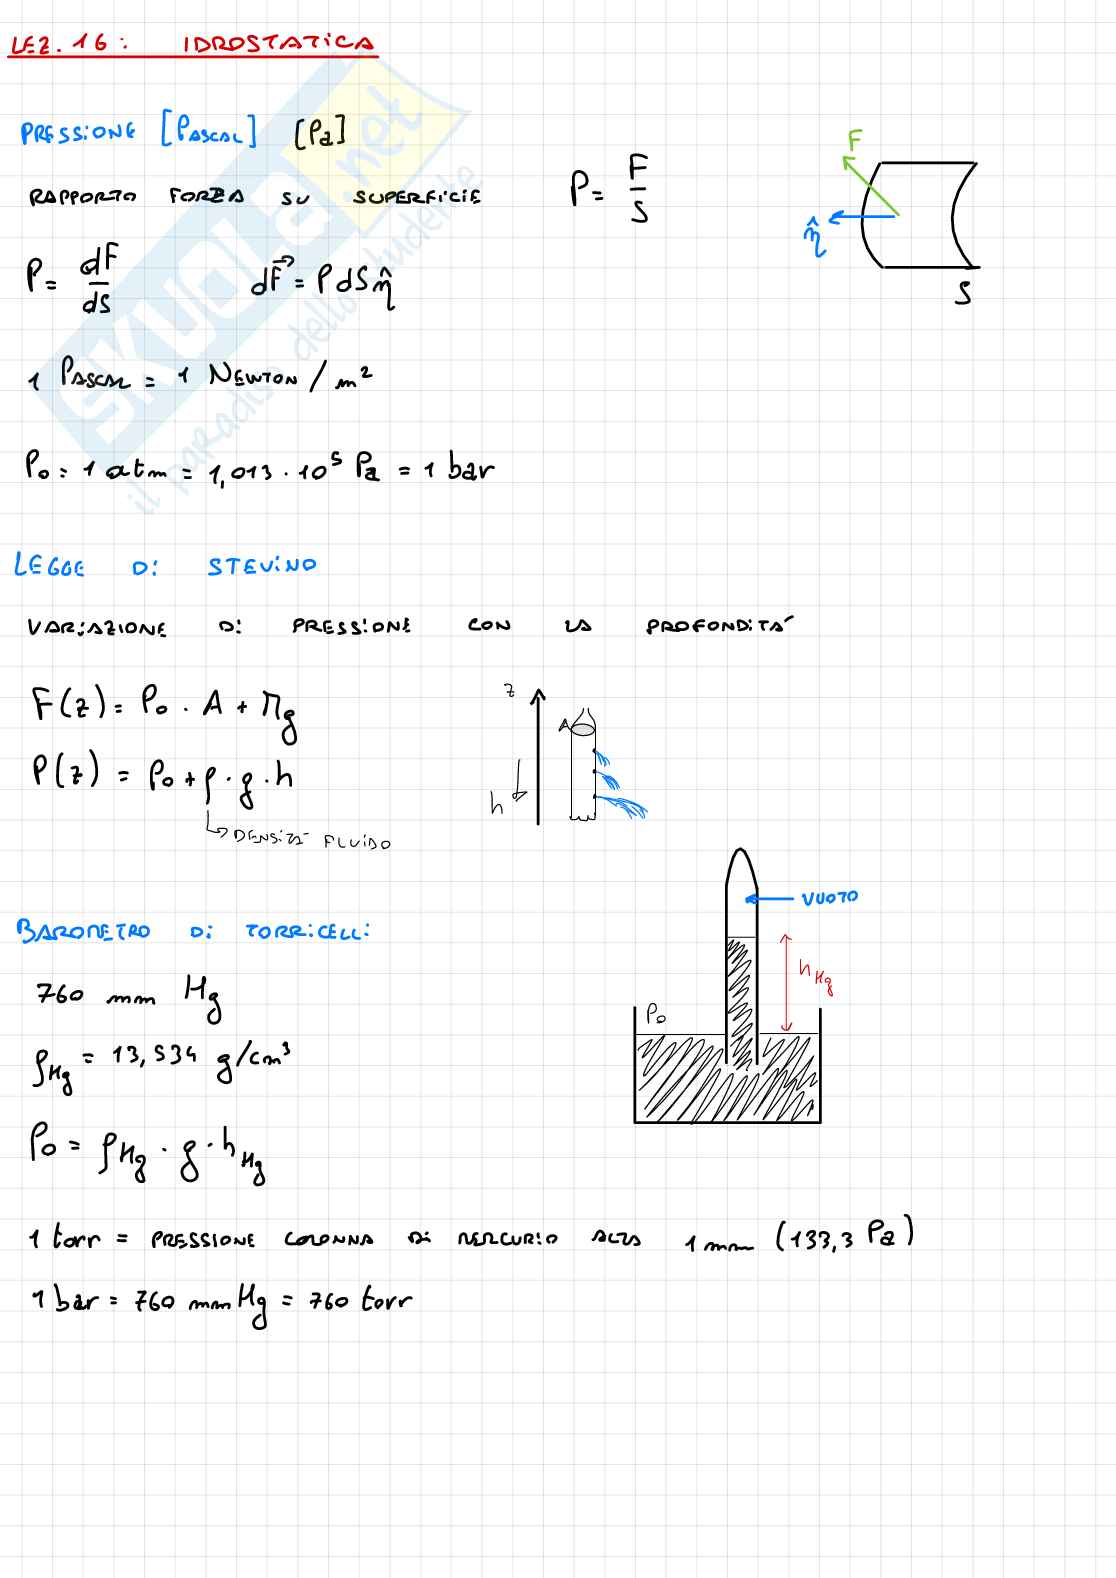 LEZ. 16: IDROSTATICA
PRESSIONE [PASCAL] [Pa]
RAPPORTO FORZA SU SUPERFICIE
P = F/S
F
n̂
S
P = dF/dS
dF⃗ = P dS n̂
1 PASCAL = 1 NEWTON / m²
P₀ = 1 atm = 1,013 · 10⁵ Pa = 1 bar
LEGGE Di STEViNO
VARiAZIONE Di PRESSiONE CON LA PROFONDITA'
F(z) = P₀ · A + Mg
P(z) = P₀ + ρ · g · h
DENSITA' FLUiDO
z
A
h
BAROMETRO Di TORRiCELLi
760 mm Hg
ρHg = 13,534 g/cm³
P₀ = ρHg · g · hHg
VUOTO
hHg
P₀
1 torr = PRESSIONE COLONNA Di MERCURiO ALTA 1 mm (133,3 Pa)
1 bar = 760 mm Hg = 760 torr
SKUOLA.net
il paradiso dello studente